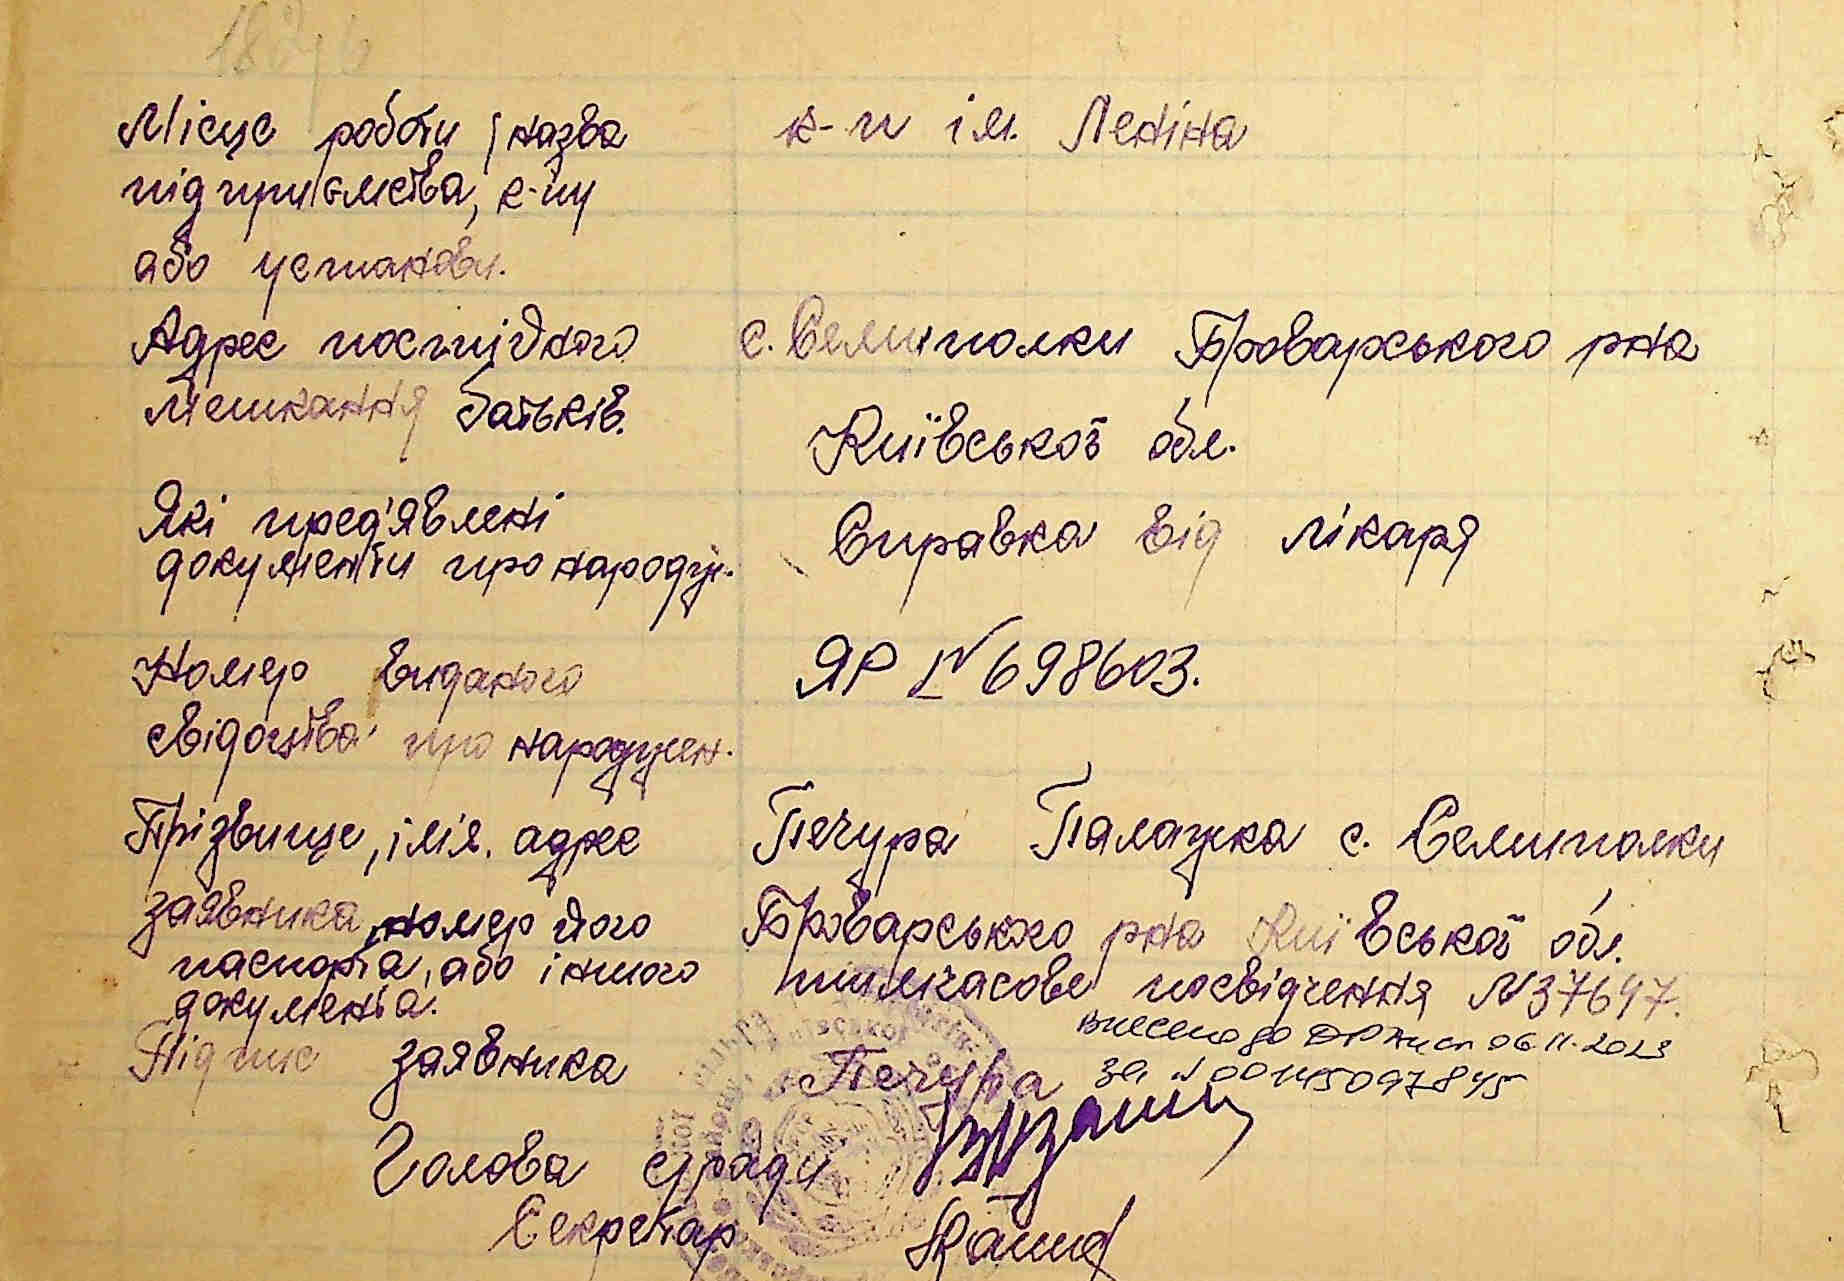 Місце роботи /назва к-п ім. Леніна
підприємства, к-пу
або установи.
Адрес постійного с. Семиполки Броварського рна
мешкання батьків. Київської обл.
Які пред'явлені
документи про народж. Справка від лікаря
Номер виданого ЯР № 698603.
свідоцтва про народжен.
Прізвище, ім'я, адрес Печура Палажка с. Семиполки
заявника, номер його Броварського рна Київської обл.
паспорта, або іншого тимчасове посвідчення № 37697.
документа.
внесено до ДРАЦСГ 06.11.2023
Підпис заявника Печура за № 00145097845
Голова с/ради
Секретар